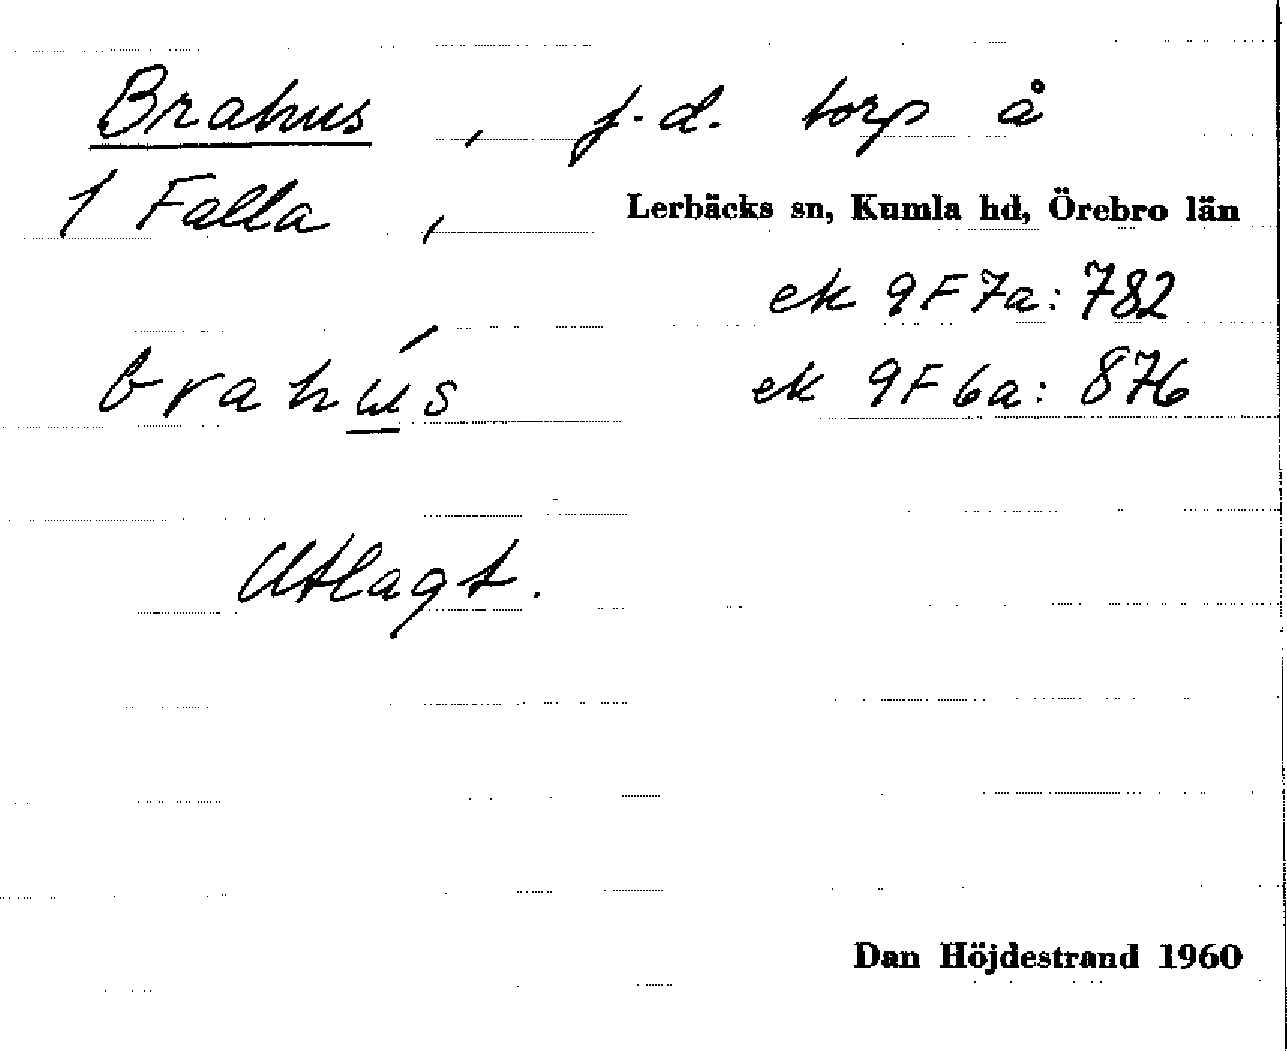 Brahus, f.d. torp å
1 Falla, Lerbäcks sn, Kumla hd, Örebro län
ek 9F7a: 782
brahú̲s ek 9F6a: 876
Utlagt.
Dan Höjdestrand 1960